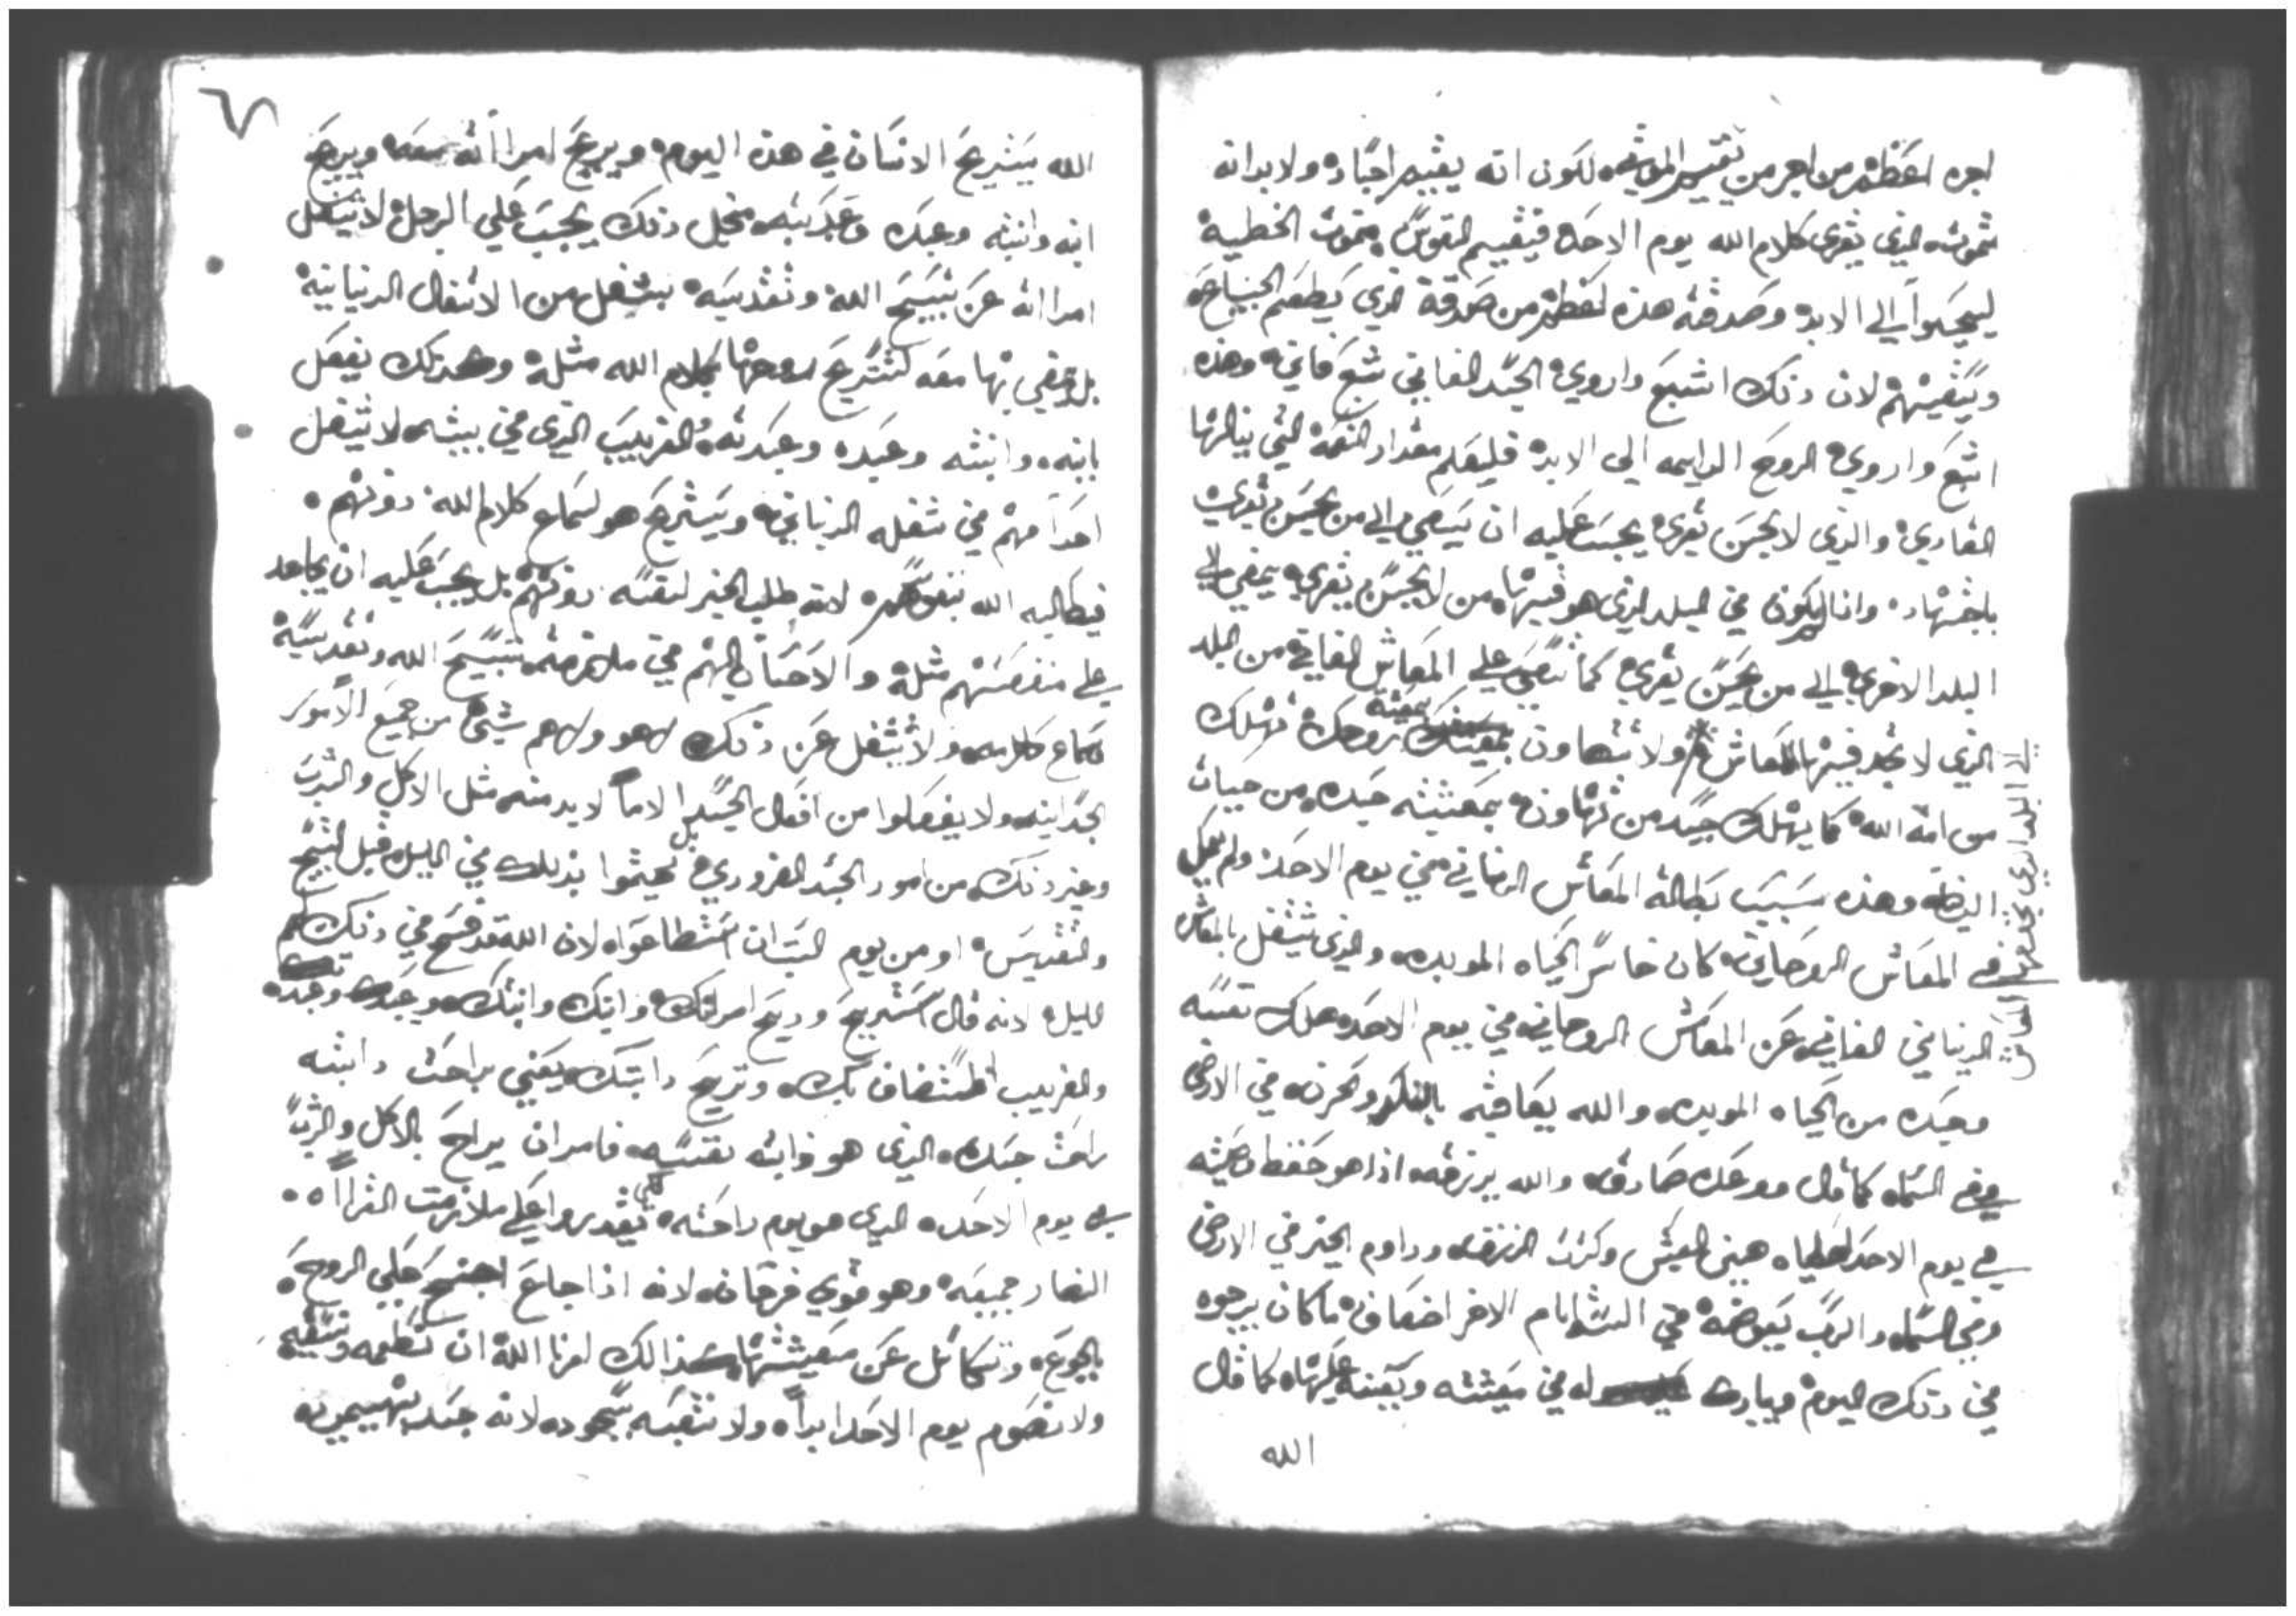 اجره اعظم من اجر من يقيم الموتى لكون انه يقيم اجساده ولا بد انه
تموت الذي يقرى كلام الله يوم الاحد فيقيم النفوس بموت الخطية
ليحيوا الي الابد وصدقته هذه اعظم من صدقة الذي يطعم الجياع
ويسقيهم لان ذلك اشبع واروي الجسد الفاني شبع فاني وهذه
اشبع واروي الروح الدايمه الي الابد فليعلم مقدار النعمة التي ينالها
القاري والذي لا يحسن يقري يجب عليه ان يسعي الي من يحسن يقري
باجتهاد وان يكون في البلد الذي هو فيها من لا يحسن يقري يمضي الي
البلد الاخري الي من يحسن يقري كما يسعي علي المعاش الفاني من البلد
الذي لا يجد فيها المعاش ولا تتهاون بمعيشة روحك تهلك
الي البلد الذي يجد فيها المعاش
من امة الله كما يهلك جسد من تهاون بمعيشته جسده من حياة
الدنيا وهذه بسبب بطالة المعاش الدنياني في يوم الاحد ولم يعمل
في المعاش الروحاني كان خاسر الحياه الموبده والذي يشتغل بالمعاش
الدنياني الفاني عن المعاش الروحاني في يوم الاحد هلك نفسه
وجسده من الحياه الموبده والله يعاقبه بالنكد وحزن في الارض
وفي السماء كما قال ووعد صادق والله يرزقه اذا هو حفظ وصيته
في يوم الاحد هني العيش وكثرت الرزق وداوم الخير في الارض
وفي السماء والرب يعوضه في الستة ايام الاخر اضعاف ما كان يرجوه
في ذلك اليوم ويبارك له في معيشته ويعينه عليها كما قال
الله
الله يستريح الانسان في هذه اليوم ويريح امراته معه ويريح
ابنه وابنته وعبده وعبدته من اجل ذلك يجب علي الرجل لا يشغل
امراته عن تسبيح الله وتقديسه بشغل من الاشغال الدنيانية
بل يمضي بها معه لتستريح روحها بكلام الله مثله وكذلك يفعل
بابنه وابنته وعبده وعبدته والغريب الذي في بيته لا يشغل
احدا منهم في شغله الدنياني ويستريح هو لسماع كلام الله دونهم
فيطالبه الله بنفوسهم لانه طلب الخير لنفسه دونهم بل يجب عليه ان يجاهد
علي منفعتهم مثله والاحسان اليهم في ملازمة تسبيح الله وتقديسه
وسماع كلامه ولا يشغل عن ذلك لا هو ولا هم شيئ من جميع الامور
الجسدانيه ولا يفعلوا من افعال الجسد الا ما لا بد منه مثل الاكل والشرب
وغير ذلك من امور الجسد الضروري بل يهتموا بذلك في الليل قبل التسبيح
والتقديس او من يوم السبت ان استطاعوا لان الله قد فسح في ذلك لهم
الليل لانه قال استريح وريح امراتك وابنك وابنتك وعبدك وعبدتك
والغريب المستضاف بك وتريح دابتك يعني براحة دابته
راحة جسده الذي هو دابته نفسه فامر ان يراح بالاكل والشرب
في يوم الاحد الذي هو يوم راحته لكي يقدروا علي ملازمت القراه
النهار جميعه وهو قوي فرحان لانه اذا جاع اجتمع علي الروح
بالجوع وتكاسل عن معيشتها كذالك امرنا الله ان نطعمه ونسقيه
ولا نصوم يوم الاحد ابدا ولا نتعبه بسجود لانه جسد بهيمي